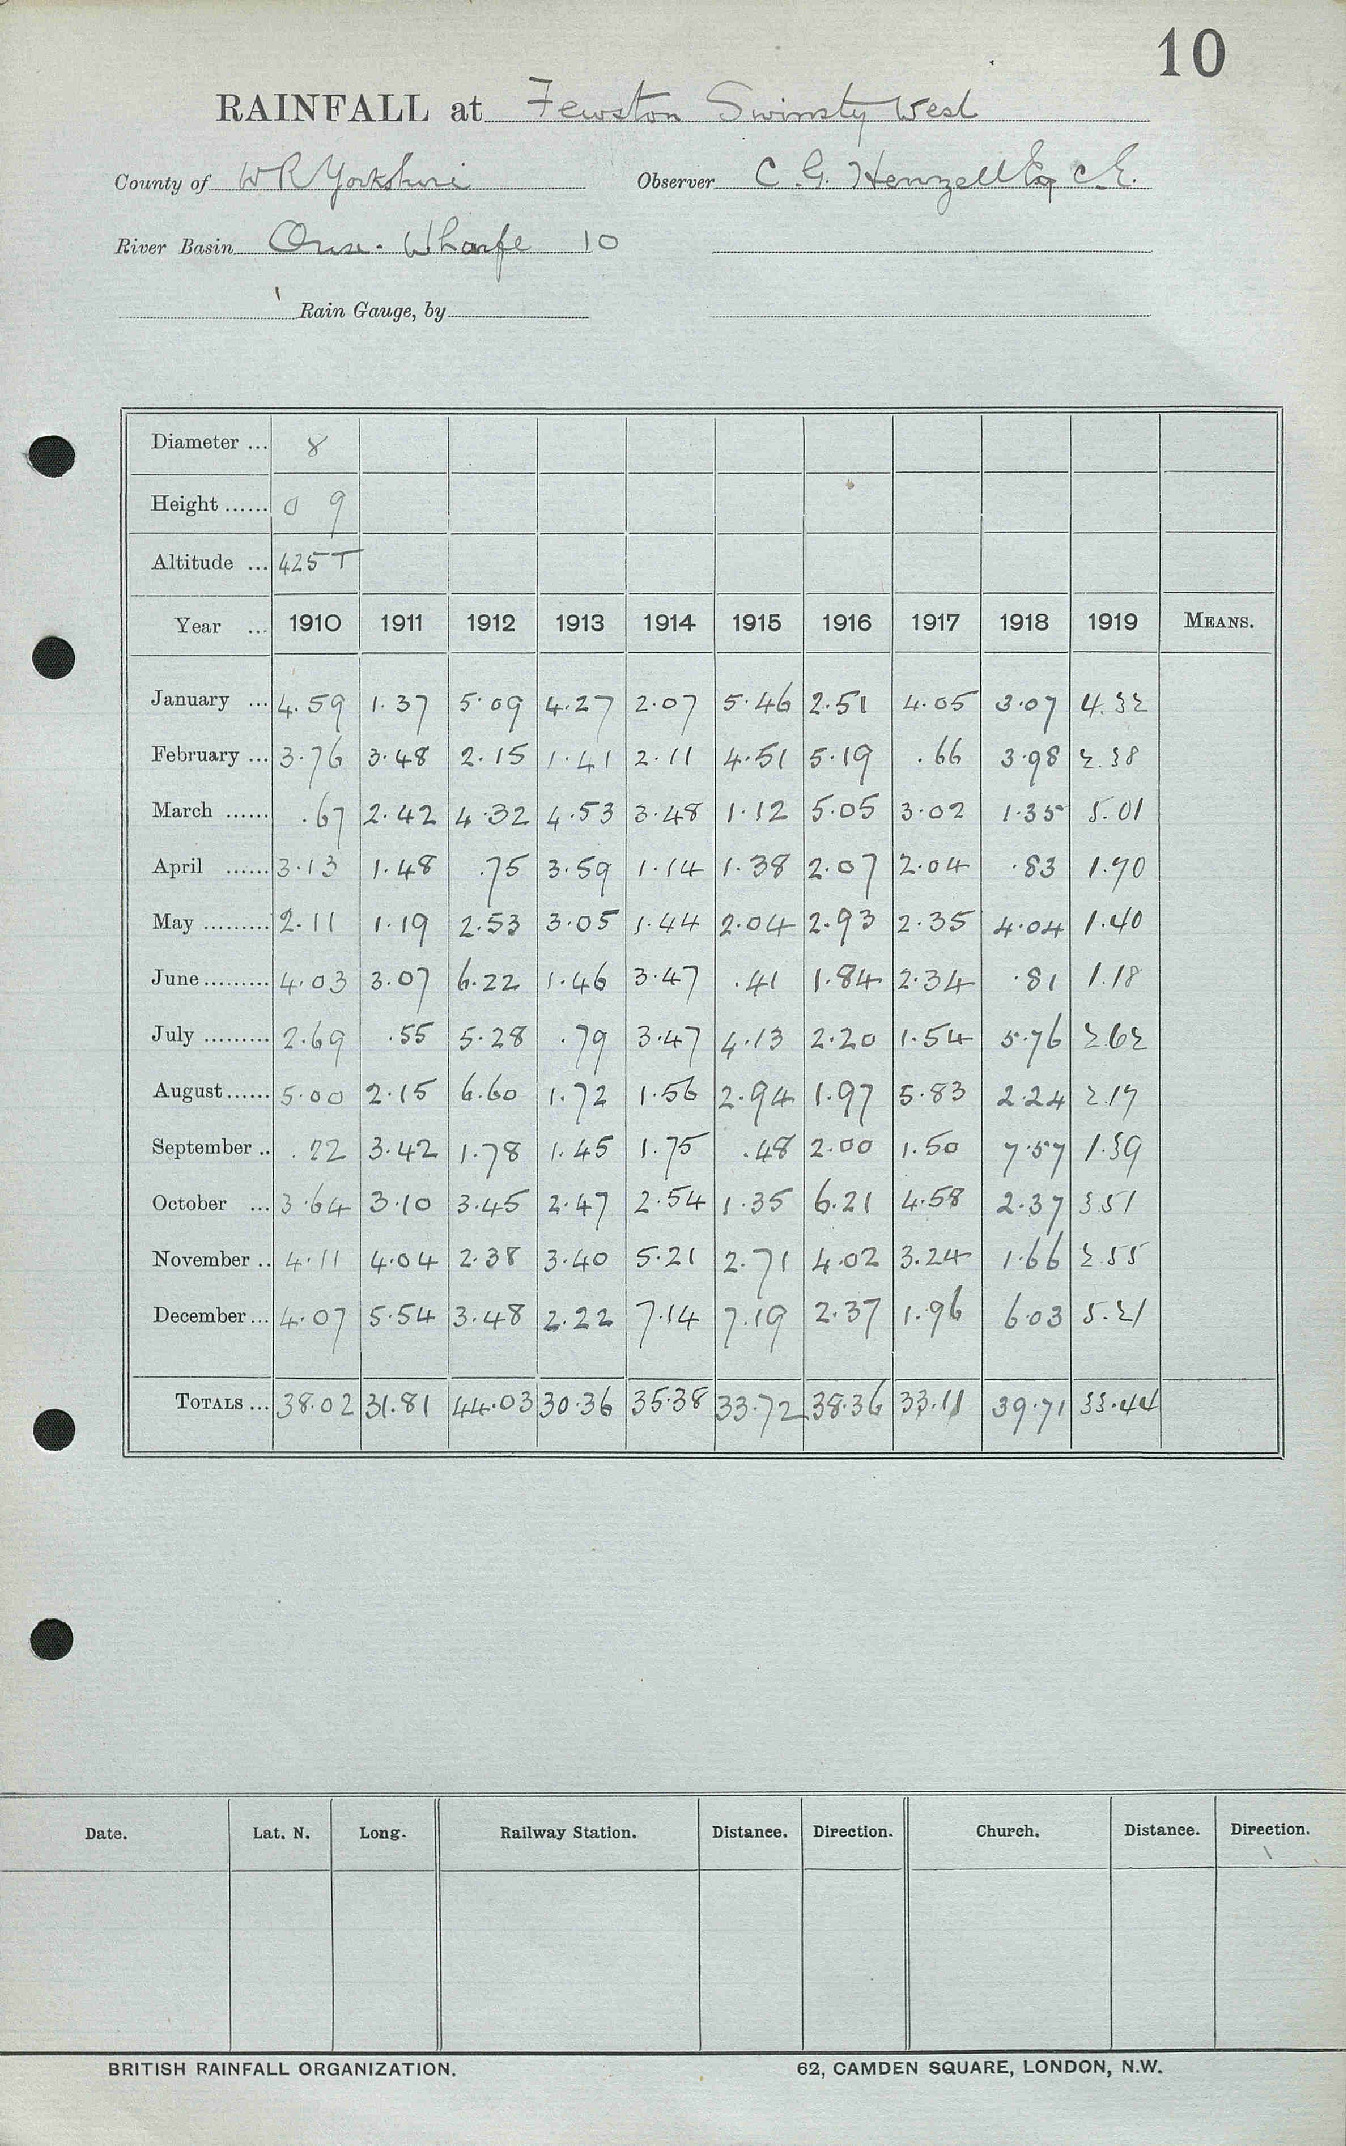 10
RAINFALL at Fewston Swinsty West
County of W R Yorkshire Observer C. G. Henzell Esq C.E.
River Basin Ouse - Wharfe 10
Rain Gauge, by
Diameter ... 8
Height ...... 0 9
Altitude ... 425 T
Year ... 1910 1911 1912 1913 1914 1915 1916 1917 1918 1919 MEANS.
January ... 4.59 1.37 5.09 4.27 2.07 5.46 2.51 4.05 3.07 4.32
February ... 3.76 3.48 2.15 1.41 2.11 4.51 5.19 .66 3.98 2.38
March ...... .67 2.42 4.32 4.53 3.48 1.12 5.05 3.02 1.35 5.01
April ...... 3.13 1.48 .75 3.59 1.14 1.38 2.07 2.04 .83 1.70
May ......... 2.11 1.19 2.53 3.05 1.44 2.04 2.93 2.35 4.04 1.40
June ......... 4.03 3.07 6.22 1.46 3.47 .41 1.84 2.34 .81 1.18
July ......... 2.69 .55 5.28 .79 3.47 4.13 2.20 1.54 5.76 2.62
August ...... 5.00 2.15 6.60 1.72 1.56 2.94 1.97 5.83 2.24 2.17
September .. .22 3.42 1.78 1.45 1.75 .48 2.00 1.50 7.57 1.39
October ... 3.64 3.10 3.45 2.47 2.54 1.35 6.21 4.58 2.37 3.51
November .. 4.11 4.04 2.38 3.40 5.21 2.71 4.02 3.24 1.66 2.55
December ... 4.07 5.54 3.48 2.22 7.14 7.19 2.37 1.96 6.03 5.21
TOTALS ... 38.02 31.81 44.03 30.36 35.38 33.72 38.36 33.11 39.71 33.44
Date. Lat. N. Long. Railway Station. Distance. Direction. Church. Distance. Direction.
BRITISH RAINFALL ORGANIZATION. 62, CAMDEN SQUARE, LONDON, N.W.